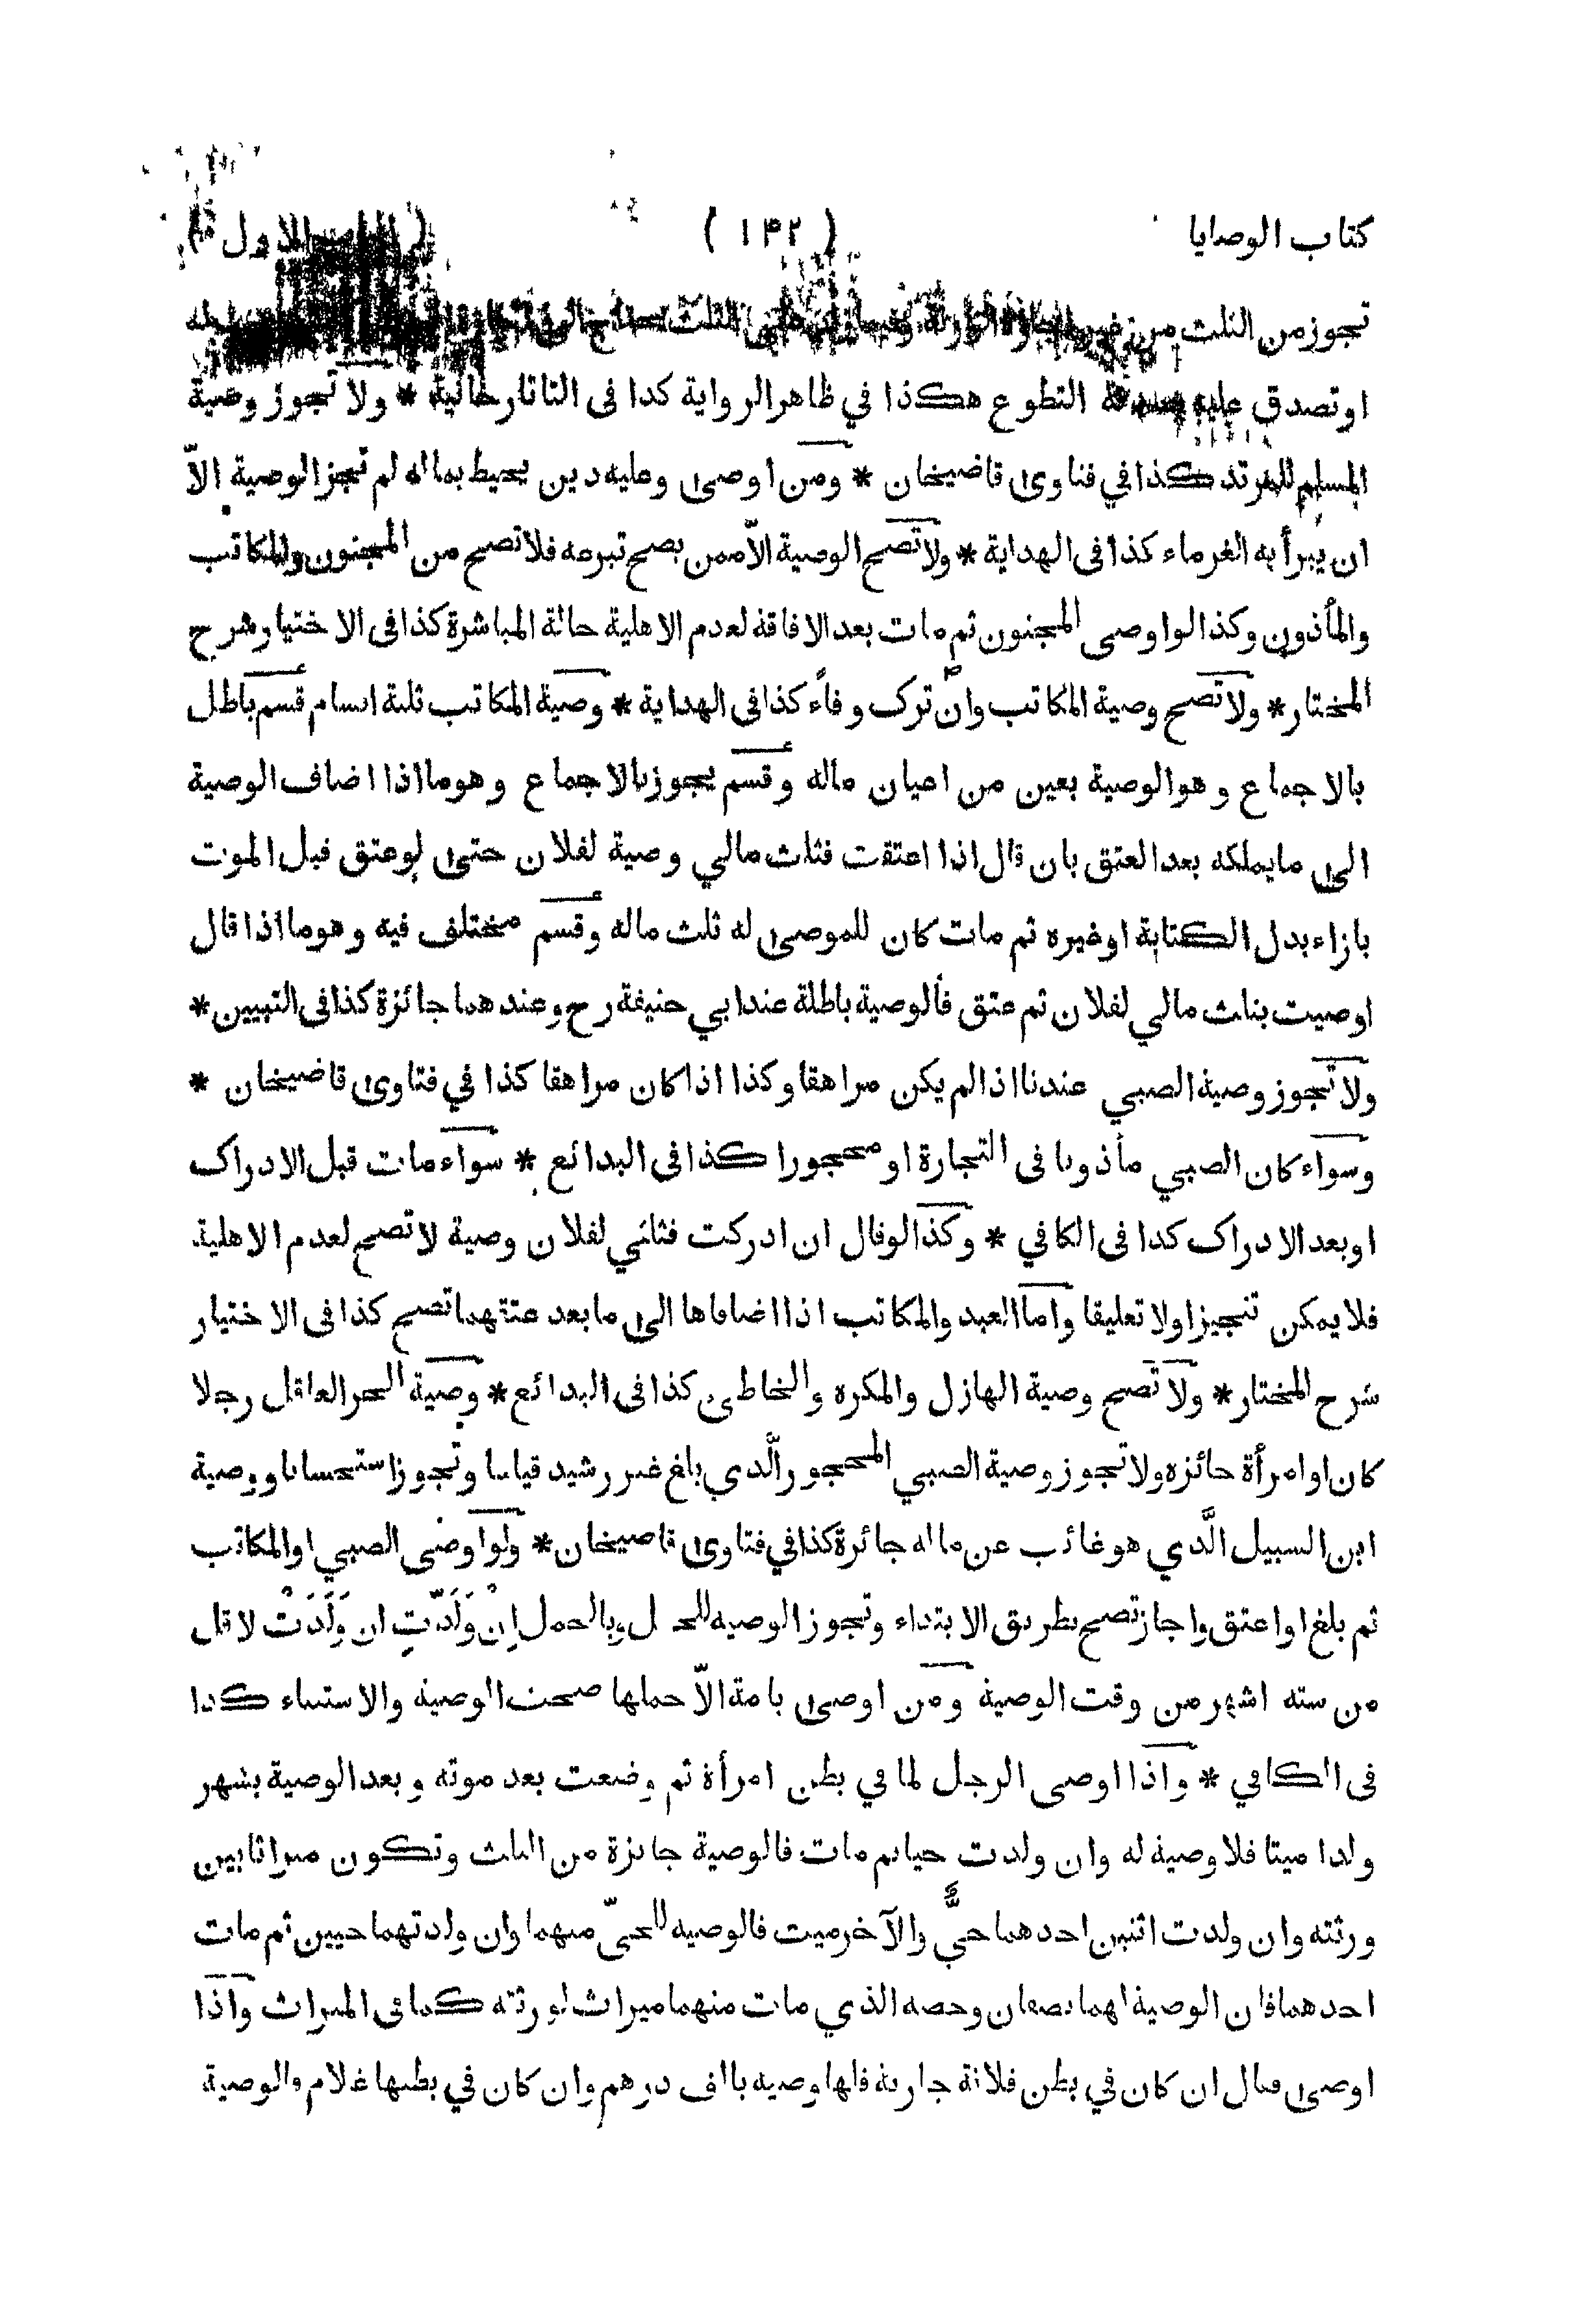 كتاب الوصايا ( ١٤٢ ) ( الاول )
تجوز من الثلث من غير
او تصدق عليه التطوع هكذا في ظاهر الرواية كذا فى التاتارخانية * ولا تجوز وصية
المسلم للمرتد كذا في فتاوى قاضيخان * ومن اوصى وعليه دين يحيط بماله لم تجز الوصية الاّ
ان يبرأ به الغرماء كذا فى الهداية * ولا تصح الوصية الاّ ممن يصح تبرعه فلا تصح من المجنون والمكاتب
والمأذون وكذا لو اوصى المجنون ثم مات بعد الافاقة لعدم الاهلية حالة المباشرة كذا فى الاختيار شرح
المختار * ولا تصح وصية المكاتب وان ترك وفاءً كذا فى الهداية * وصية المكاتب ثلثة اقسام قسم باطل
بالاجماع وهو الوصية بعين من اعيان ماله وقسم يجوز بالاجماع وهو ما اذا اضاف الوصية
الى ما يملكه بعد العتق بان قال اذا اعتقت فثلث مالي وصية لفلان حتى لو عتق قبل الموت
بازاء بدل الكتابة او غيره ثم مات كان للموصى له ثلث ماله وقسم مختلف فيه وهو ما اذا قال
اوصيت بثلث مالي لفلان ثم عتق فالوصية باطلة عند ابي حنيفة رح وعندهما جائزة كذا فى التبيين *
ولا تجوز وصية الصبي عندنا اذا لم يكن مراهقا وكذا اذا كان مراهقا كذا في فتاوى قاضيخان *
وسواء كان الصبي مأذونا فى التجارة او محجورا كذا فى البدائع * سواء مات قبل الادراك
او بعد الادراك كذا فى الكافي * وكذا لو قال ان ادركت فثلثي لفلان وصية لا تصح لعدم الاهلية
فلا يمكن تنجيزا ولا تعليقا واما العبد والمكاتب اذا اضافاها الى ما بعد عتقهما تصح كذا فى الاختيار
شرح المختار * ولا تصح وصية الهازل والمكره والخاطئ كذا فى البدائع * وصية الحر العاقل رجلا
كان او امرأة جائزه ولا تجوز وصية الصبي المحجور الّذي بلغ غير رشيد قياسا وتجوز استحسانا ووصية
ابن السبيل الّذي هو غائب عن ماله جائزة كذا في فتاوى قاضيخان * ولو اوصى الصبي او المكاتب
ثم بلغ او اعتق واجاز تصح بطريق الابتداء وتجوز الوصيه للحمل وبالحمل اِنْ وَلَدَتْ ان وَلَدَتْ لاقل
من سته اشهر من وقت الوصية ومن اوصى بامة الاّ حملها صحت الوصيه والاستثناء كذا
فى الكافي * واذا اوصى الرجل لما في بطن امرأة ثم وضعت بعد موته وبعد الوصية بشهر
ولدا ميتا فلا وصية له وان ولدت حيا ثم مات فالوصية جائزة من الثلث وتكون ميراثا بين
ورثته وان ولدت اثنين احدهما حيٌّ والآخر ميت فالوصيه للحىّ منهما وان ولدتهما حيين ثم مات
احدهما فان الوصية لهما نصفان وحصه الذي مات منهما ميراث لورثته كما فى الميراث واذا
اوصى فقال ان كان في بطن فلانة جارية فلها وصيه بالف درهم وان كان في بطنها غلام والوصية